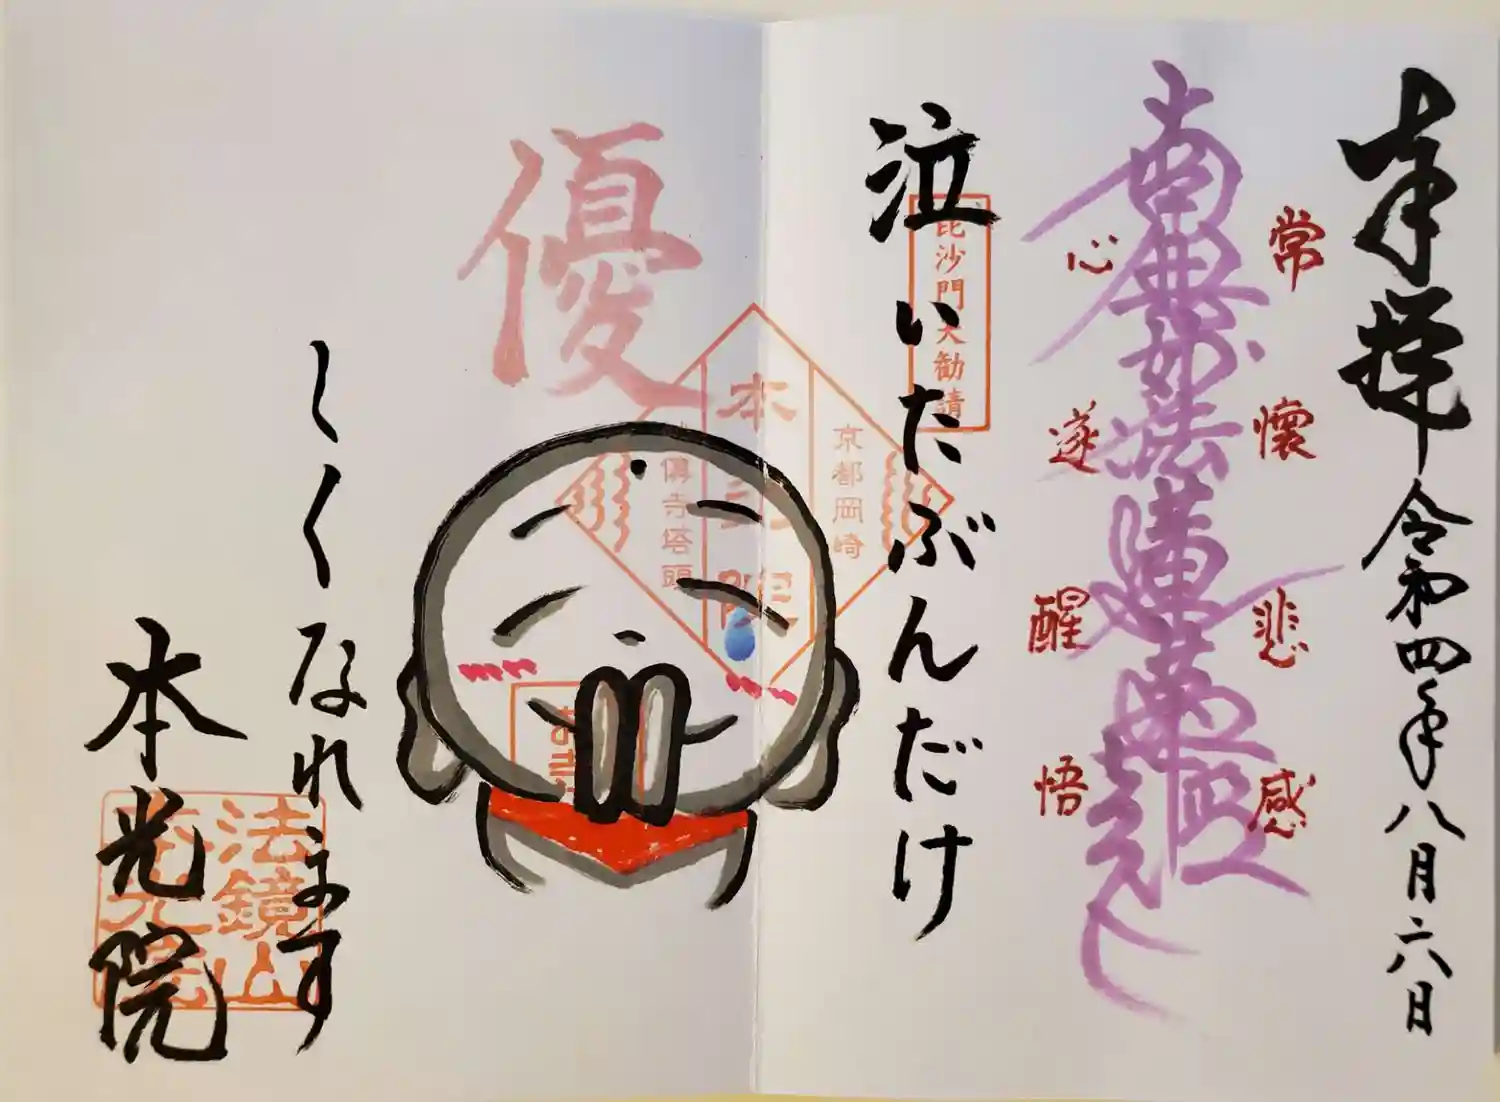 奉拝 令和四年八月六日
常懐悲感
南無妙法蓮華経
心遂醒悟
泣いたぶんだけ
毘沙門天勧請
京都岡崎
本光院
傳寺塔頭
優
しくなれます
本光院
法鏡山
本光院